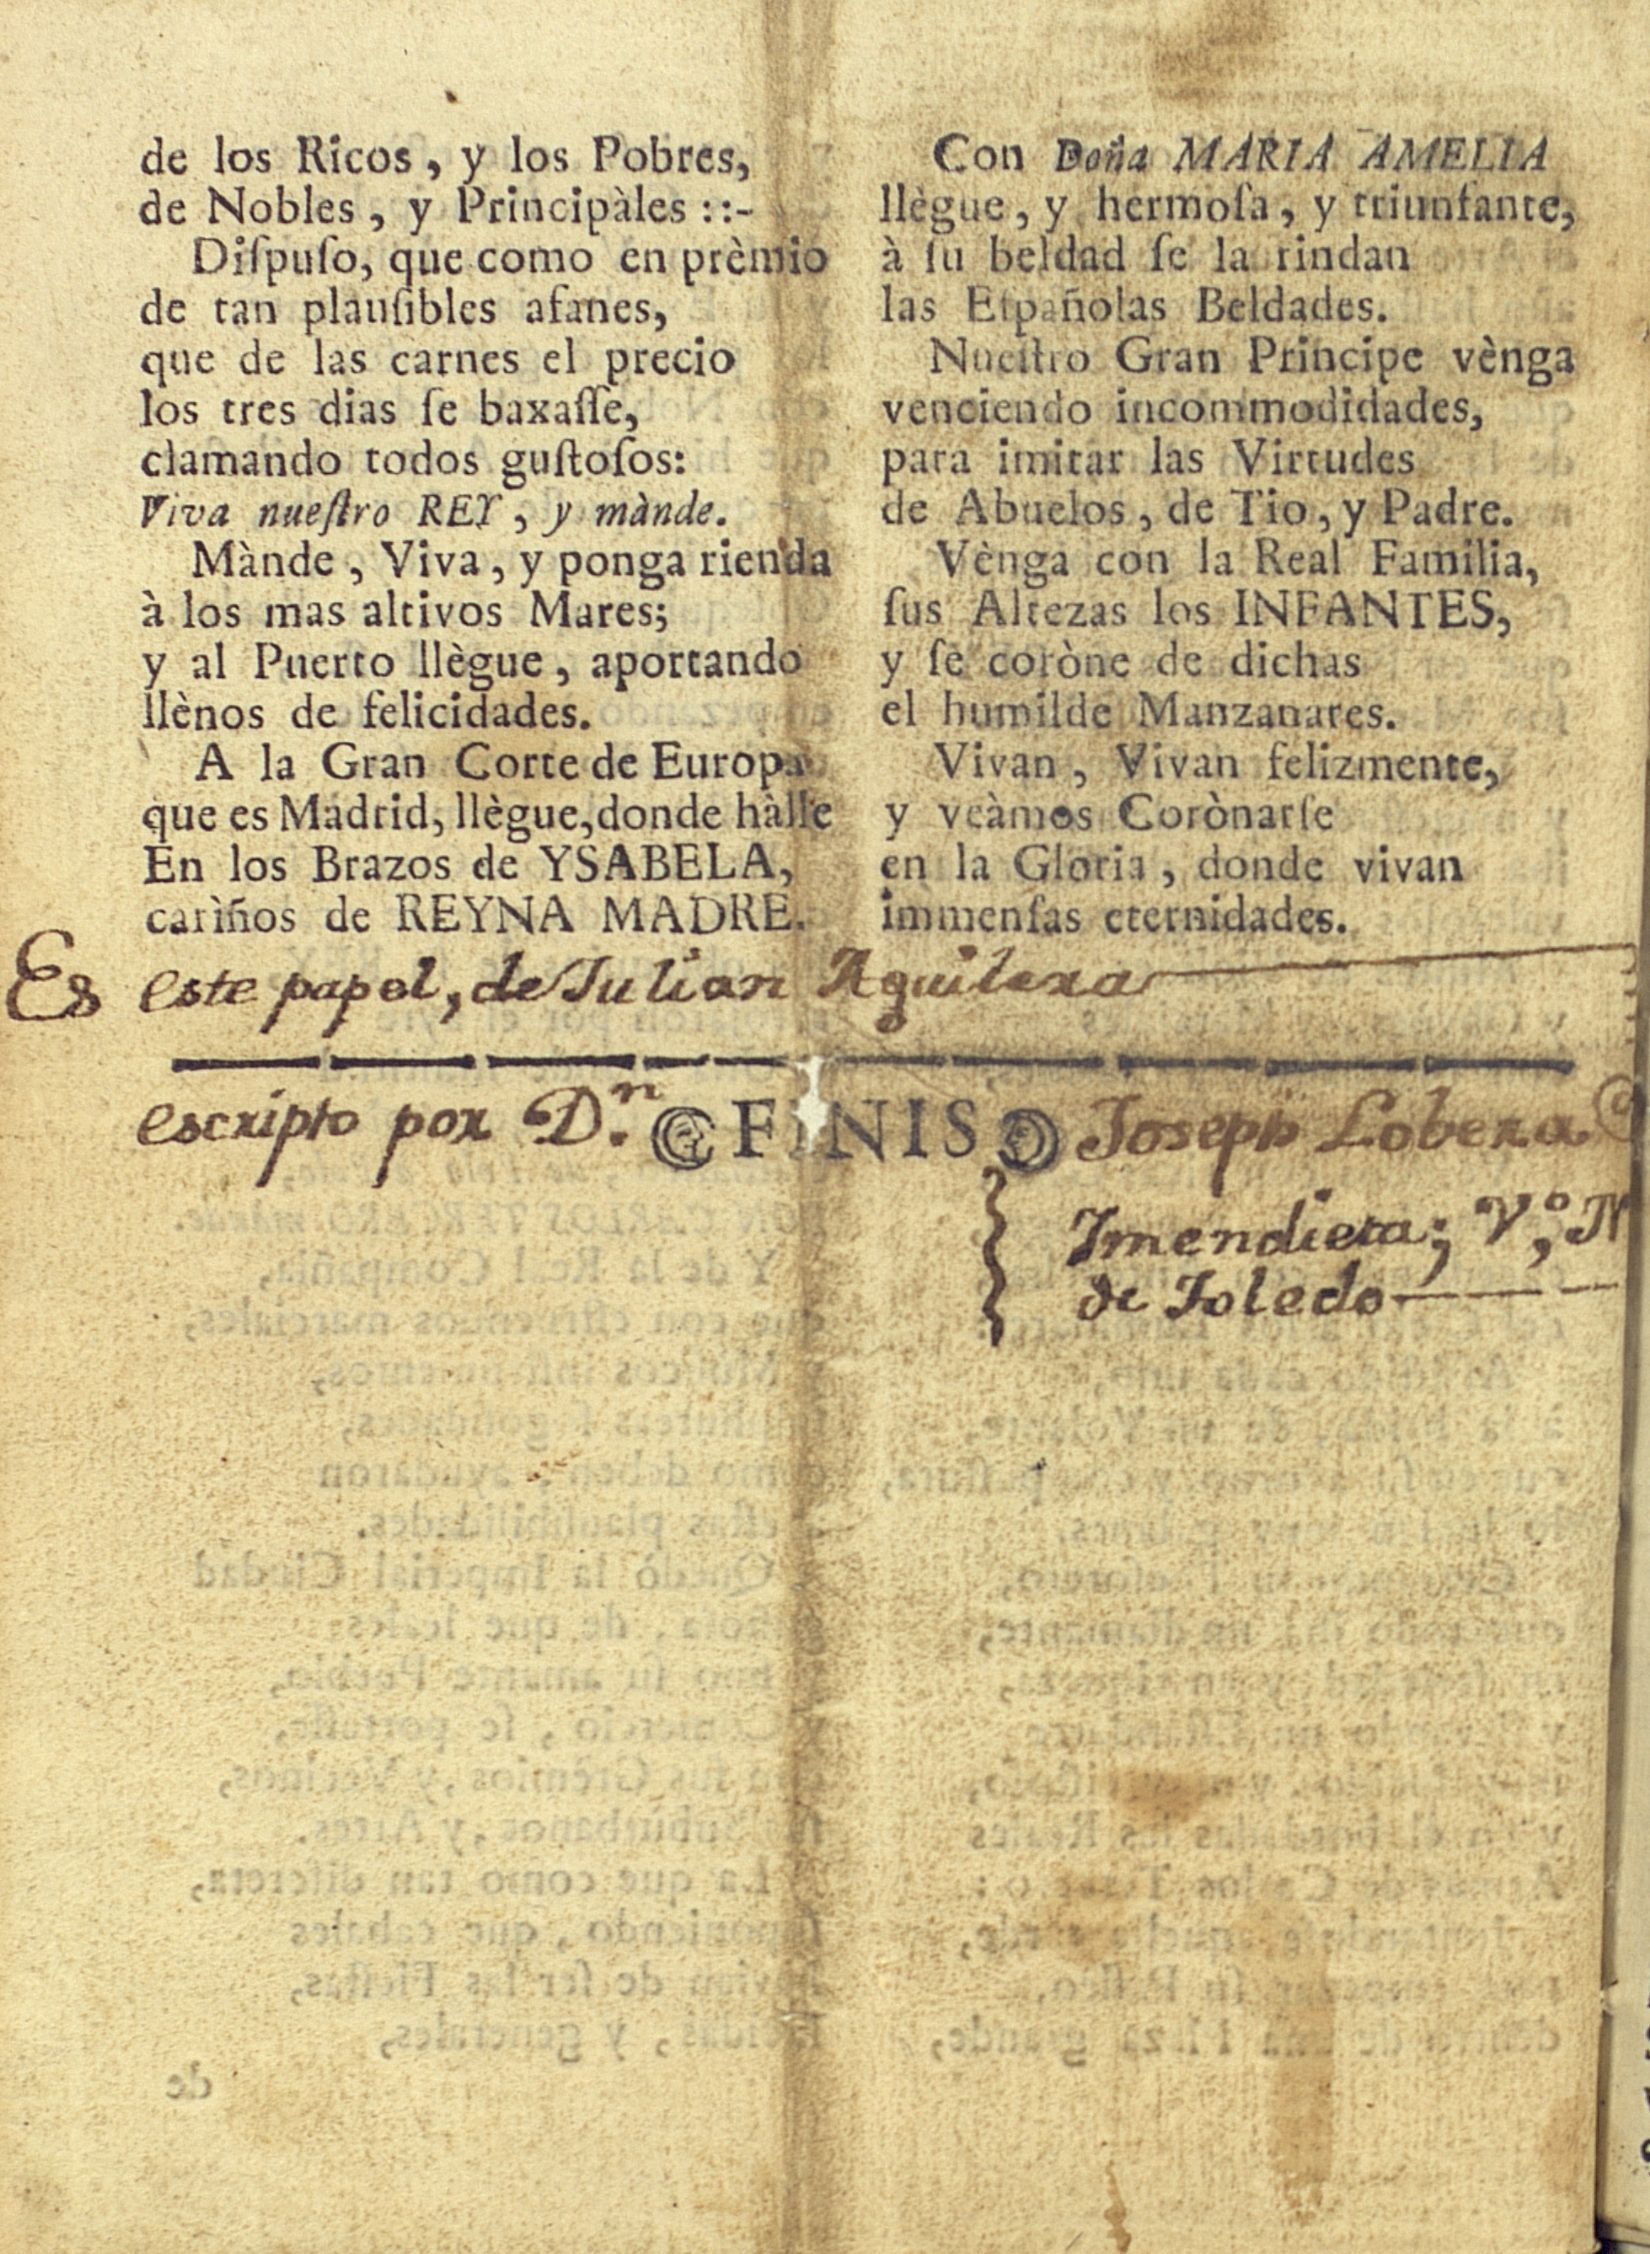 de los Ricos, y los Pobres,
de Nobles, y Principàles ::-
Diſpuſo, que como en prèmio
de tan plauſibles afanes,
que de las carnes el precio
los tres dias ſe baxaſſe,
clamando todos guſtoſos:
Viva nueſtro REY, y mànde.
Mànde, Viva, y ponga rienda
à los mas altivos Mares;
y al Puerto llègue, aportando
llènos de felicidades.
A la Gran Corte de Europa
que es Madrid, llègue, donde hàlle
En los Brazos de YSABELA,
carìños de REYNA MADRE.
Con Doña MARIA AMELIA
llègue, y hermoſa, y triunfante,
à ſu beldad ſe la rindan
las Eſpañolas Beldades.
Nueſtro Gran Principe vènga
venciendo incommodidades,
para imitar las Virtudes
de Abuelos, de Tio, y Padre.
Vènga con la Real Familia,
ſus Altezas los INFANTES,
y ſe coròne de dichas
el humilde Manzanares.
Vivan, Vivan felizmente,
y veàmos Corònarſe
en la Gloria, donde vivan
immenſas eternidades.
Es este papel, de Julian Aguilera
FINIS
escripto por D.n Joseph Lobera
Imendieta; V,o N
de Toledo